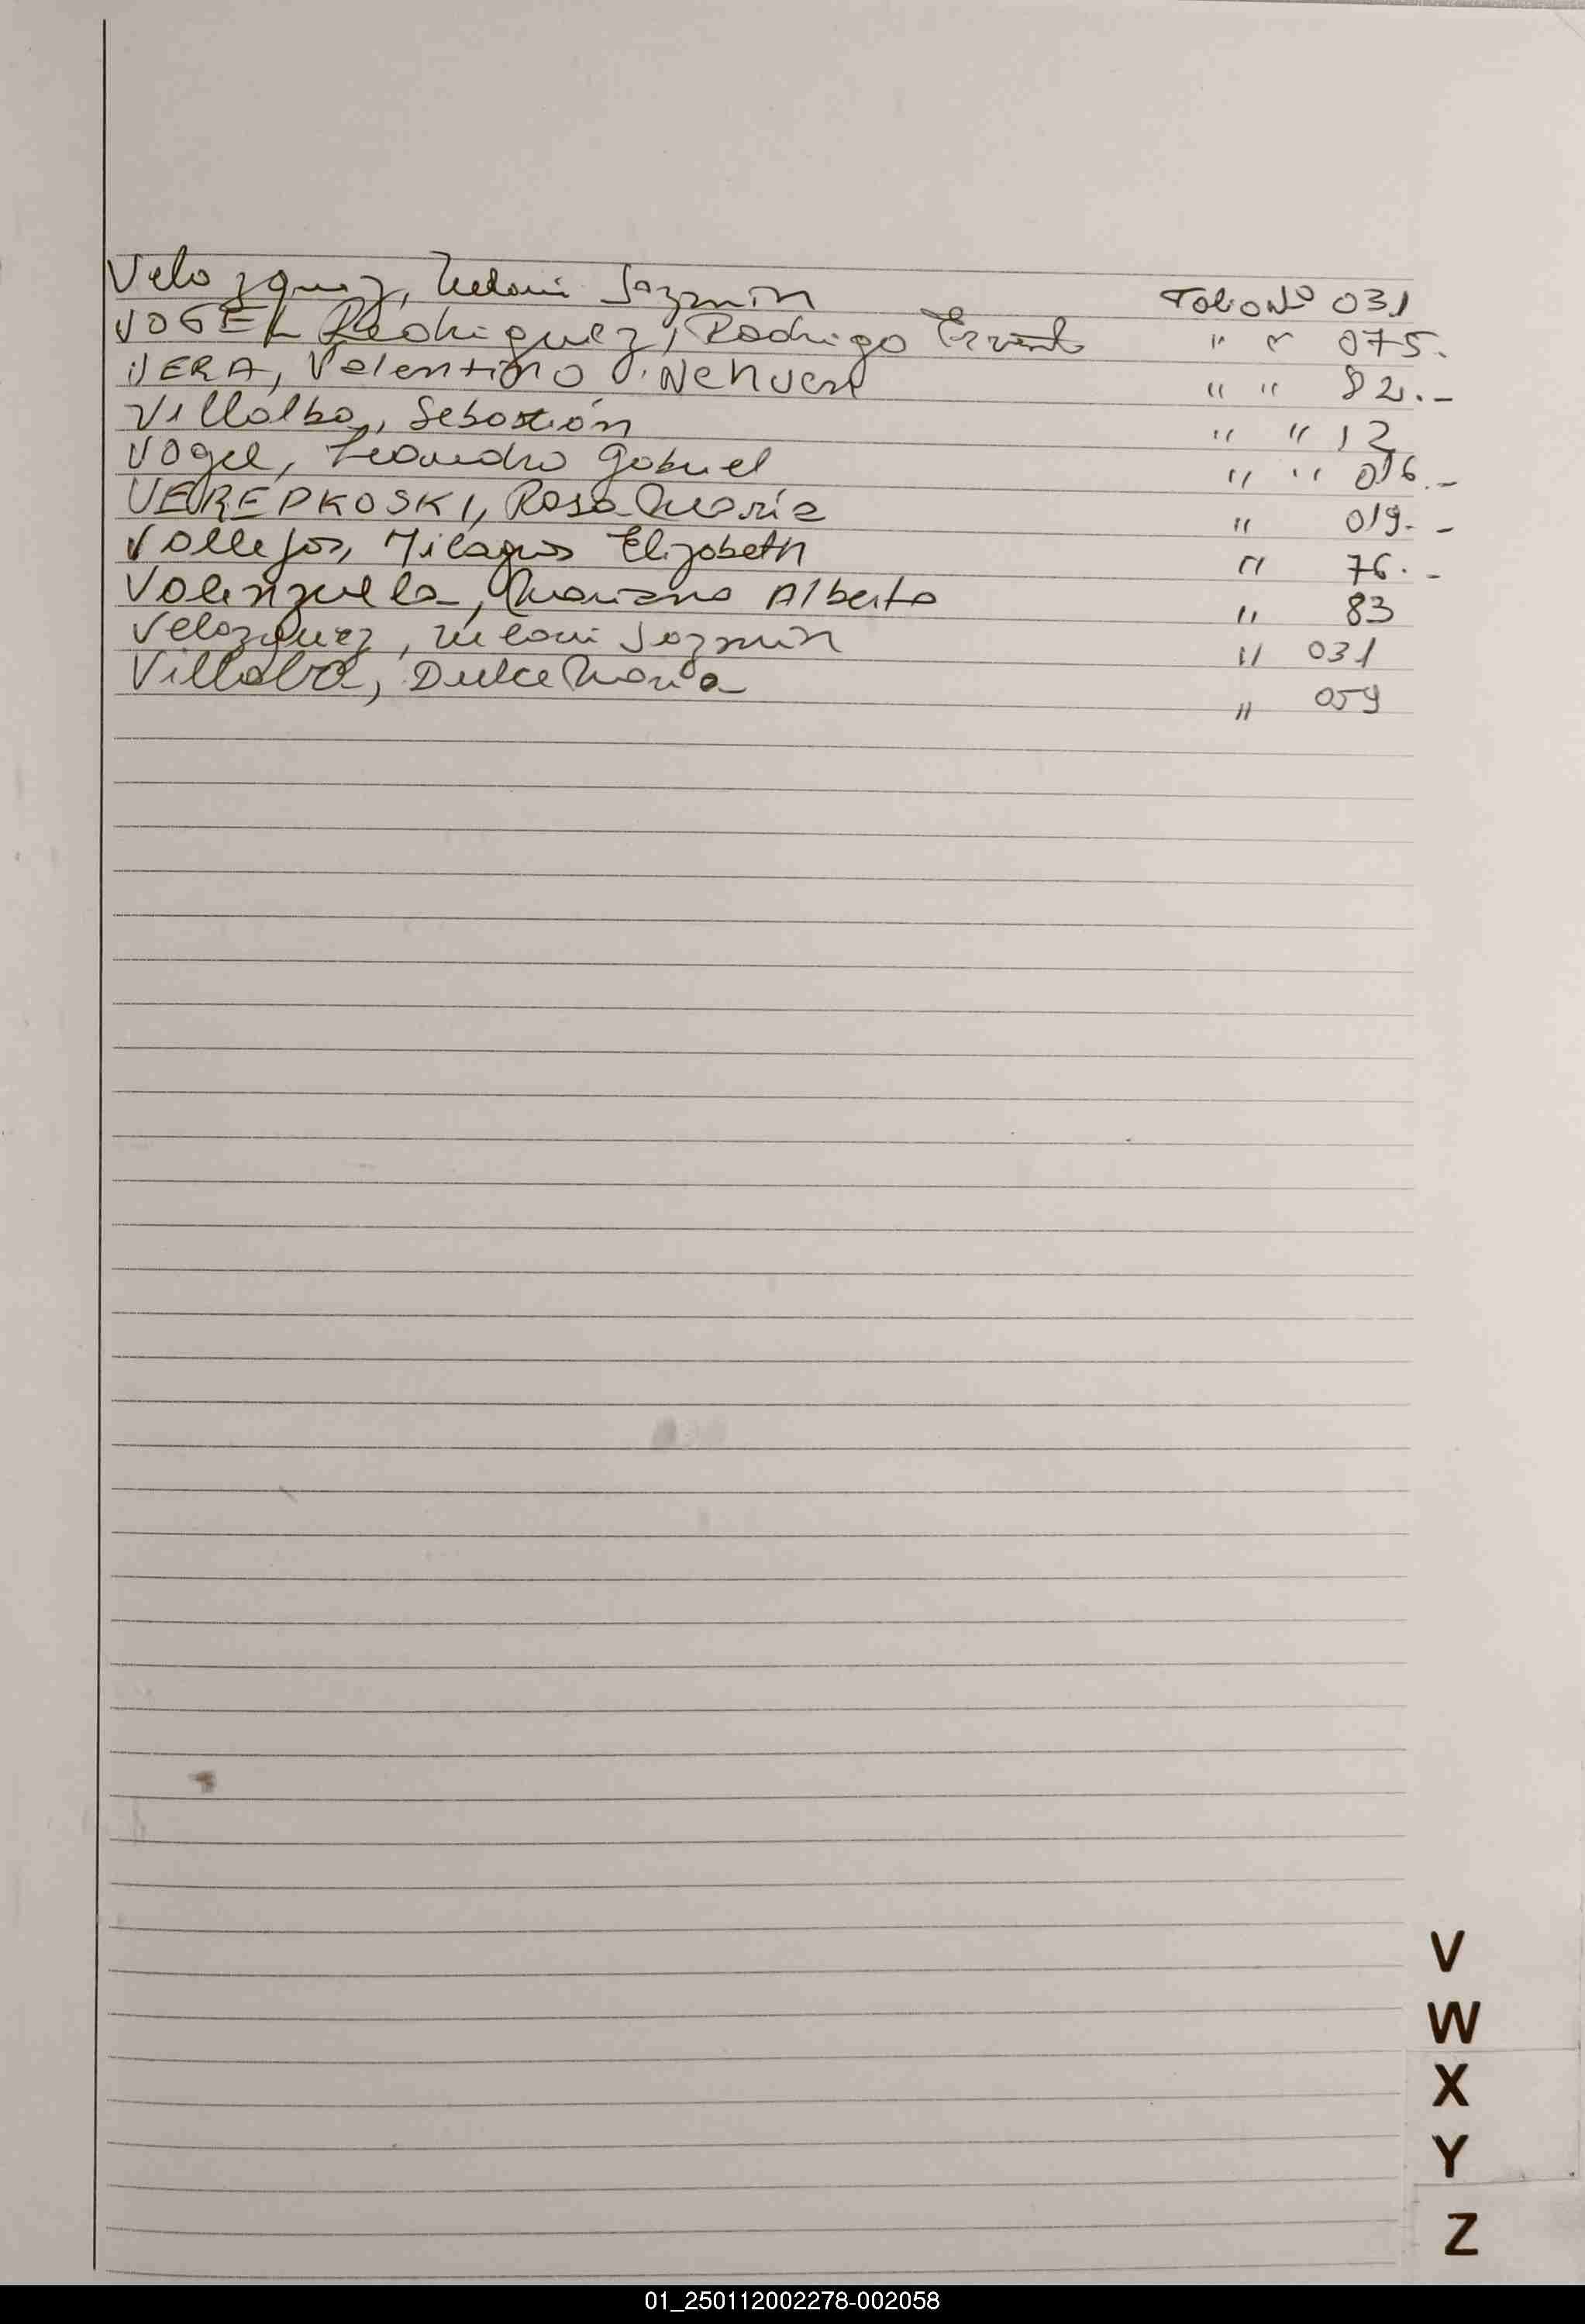 Velozquez, Melani Jazmin Folio Nº 031
VOGEL Rodriguez, Rodrigo " " 075.
VERA, Valentino Nehuen " " 82.-
Villalba, Sebastián " " 12
Vogel, Leandro Gabriel " " 016.-
VEREPKOSKI, Rosa Maria " 019.-
Vallejos, Milagros Elizabeth " 76.-
Valenzuela, Mariano Alberto " 83
Velozquez, Melani Jazmin " 031
Villalba, Dulce Maria " 059
V
W
X
Y
Z
01_250112002278-002058